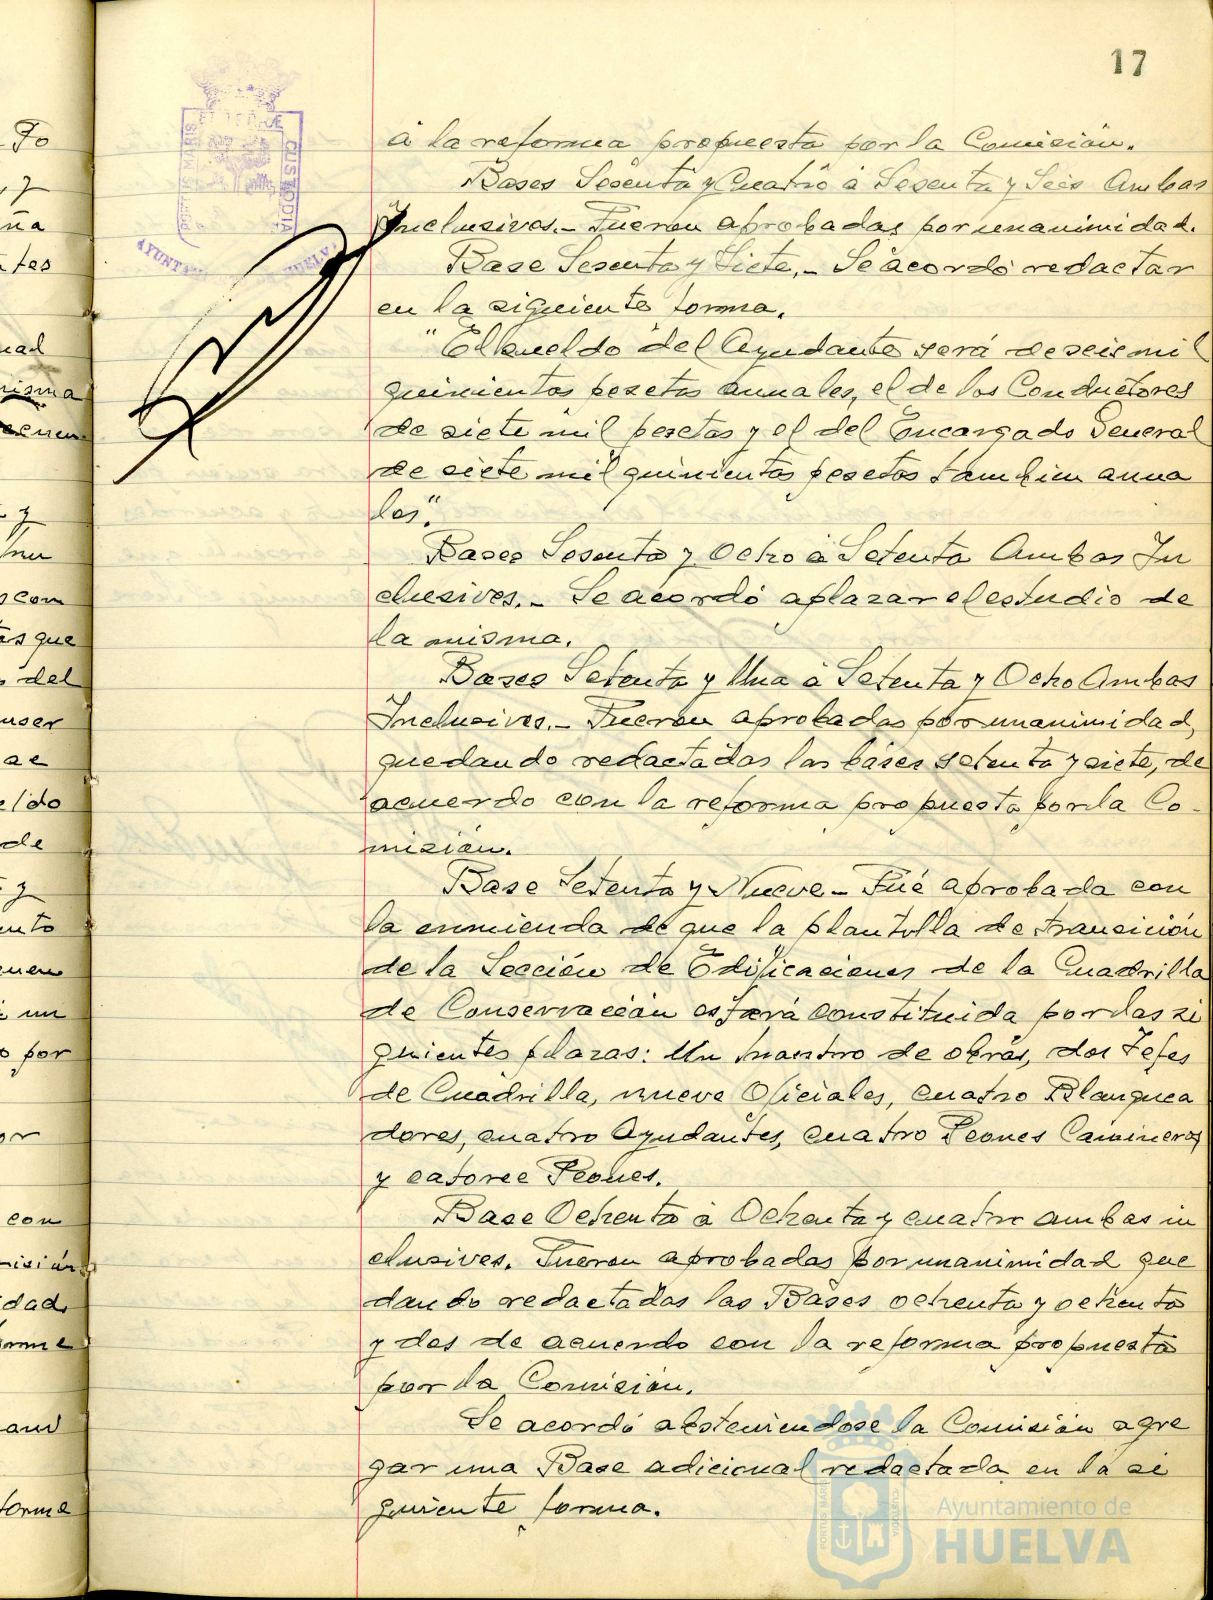 17
à la reforma propuesta por la Comisión.
Bases Sesenta y Cuatro à Sesenta y Seis Ambas
Inclusives.- Fueron aprobadas por unanimidad.
Base Sesenta y Siete.- Se acordó redactar
en la siguiente forma.
"El sueldo del Ayudante será de seis mil
quinientas pesetas anuales, el de los Conductores
de siete mil pesetas y el del Encargado General
de siete mil quinientas pesetas tambien anua
les".
Bases Sesenta y Ocho à Setenta Ambas In
clusives.- Se acordó aplazar el estudio de
la misma.
Bases Setenta y Una à Setenta y Ocho Ambas
Inclusives.- Fueron aprobadas por unanimidad,
quedando redactadas las bases setenta y siete, de
acuerdo con la reforma propuesta por la Co-
misión.
Base Setenta y Nueve- Fué aprobada con
la enmienda de que la plantilla de transición
de la Sección de Edificaciones de la Cuadrilla
de Conservación estará constituida por las si
guientes plazas: Un Maestro de obras, dos Jefes
de Cuadrilla, nueve Oficiales, cuatro Blanquea
dores, cuatro Ayudantes, cuatro Peones Camineros
y catorce Peones.
Base Ochenta à Ochenta y cuatro ambas in
clusives. Fueron aprobadas por unanimidad que
dando redactadas las Bases ochenta y ochenta
y dos de acuerdo con la reforma propuesta
por la Comisión.
Se acordó absteniendose la Comisión agre
gar una Base adicional redactada en la si
guiente forma.
Ayuntamiento de
HUELVA